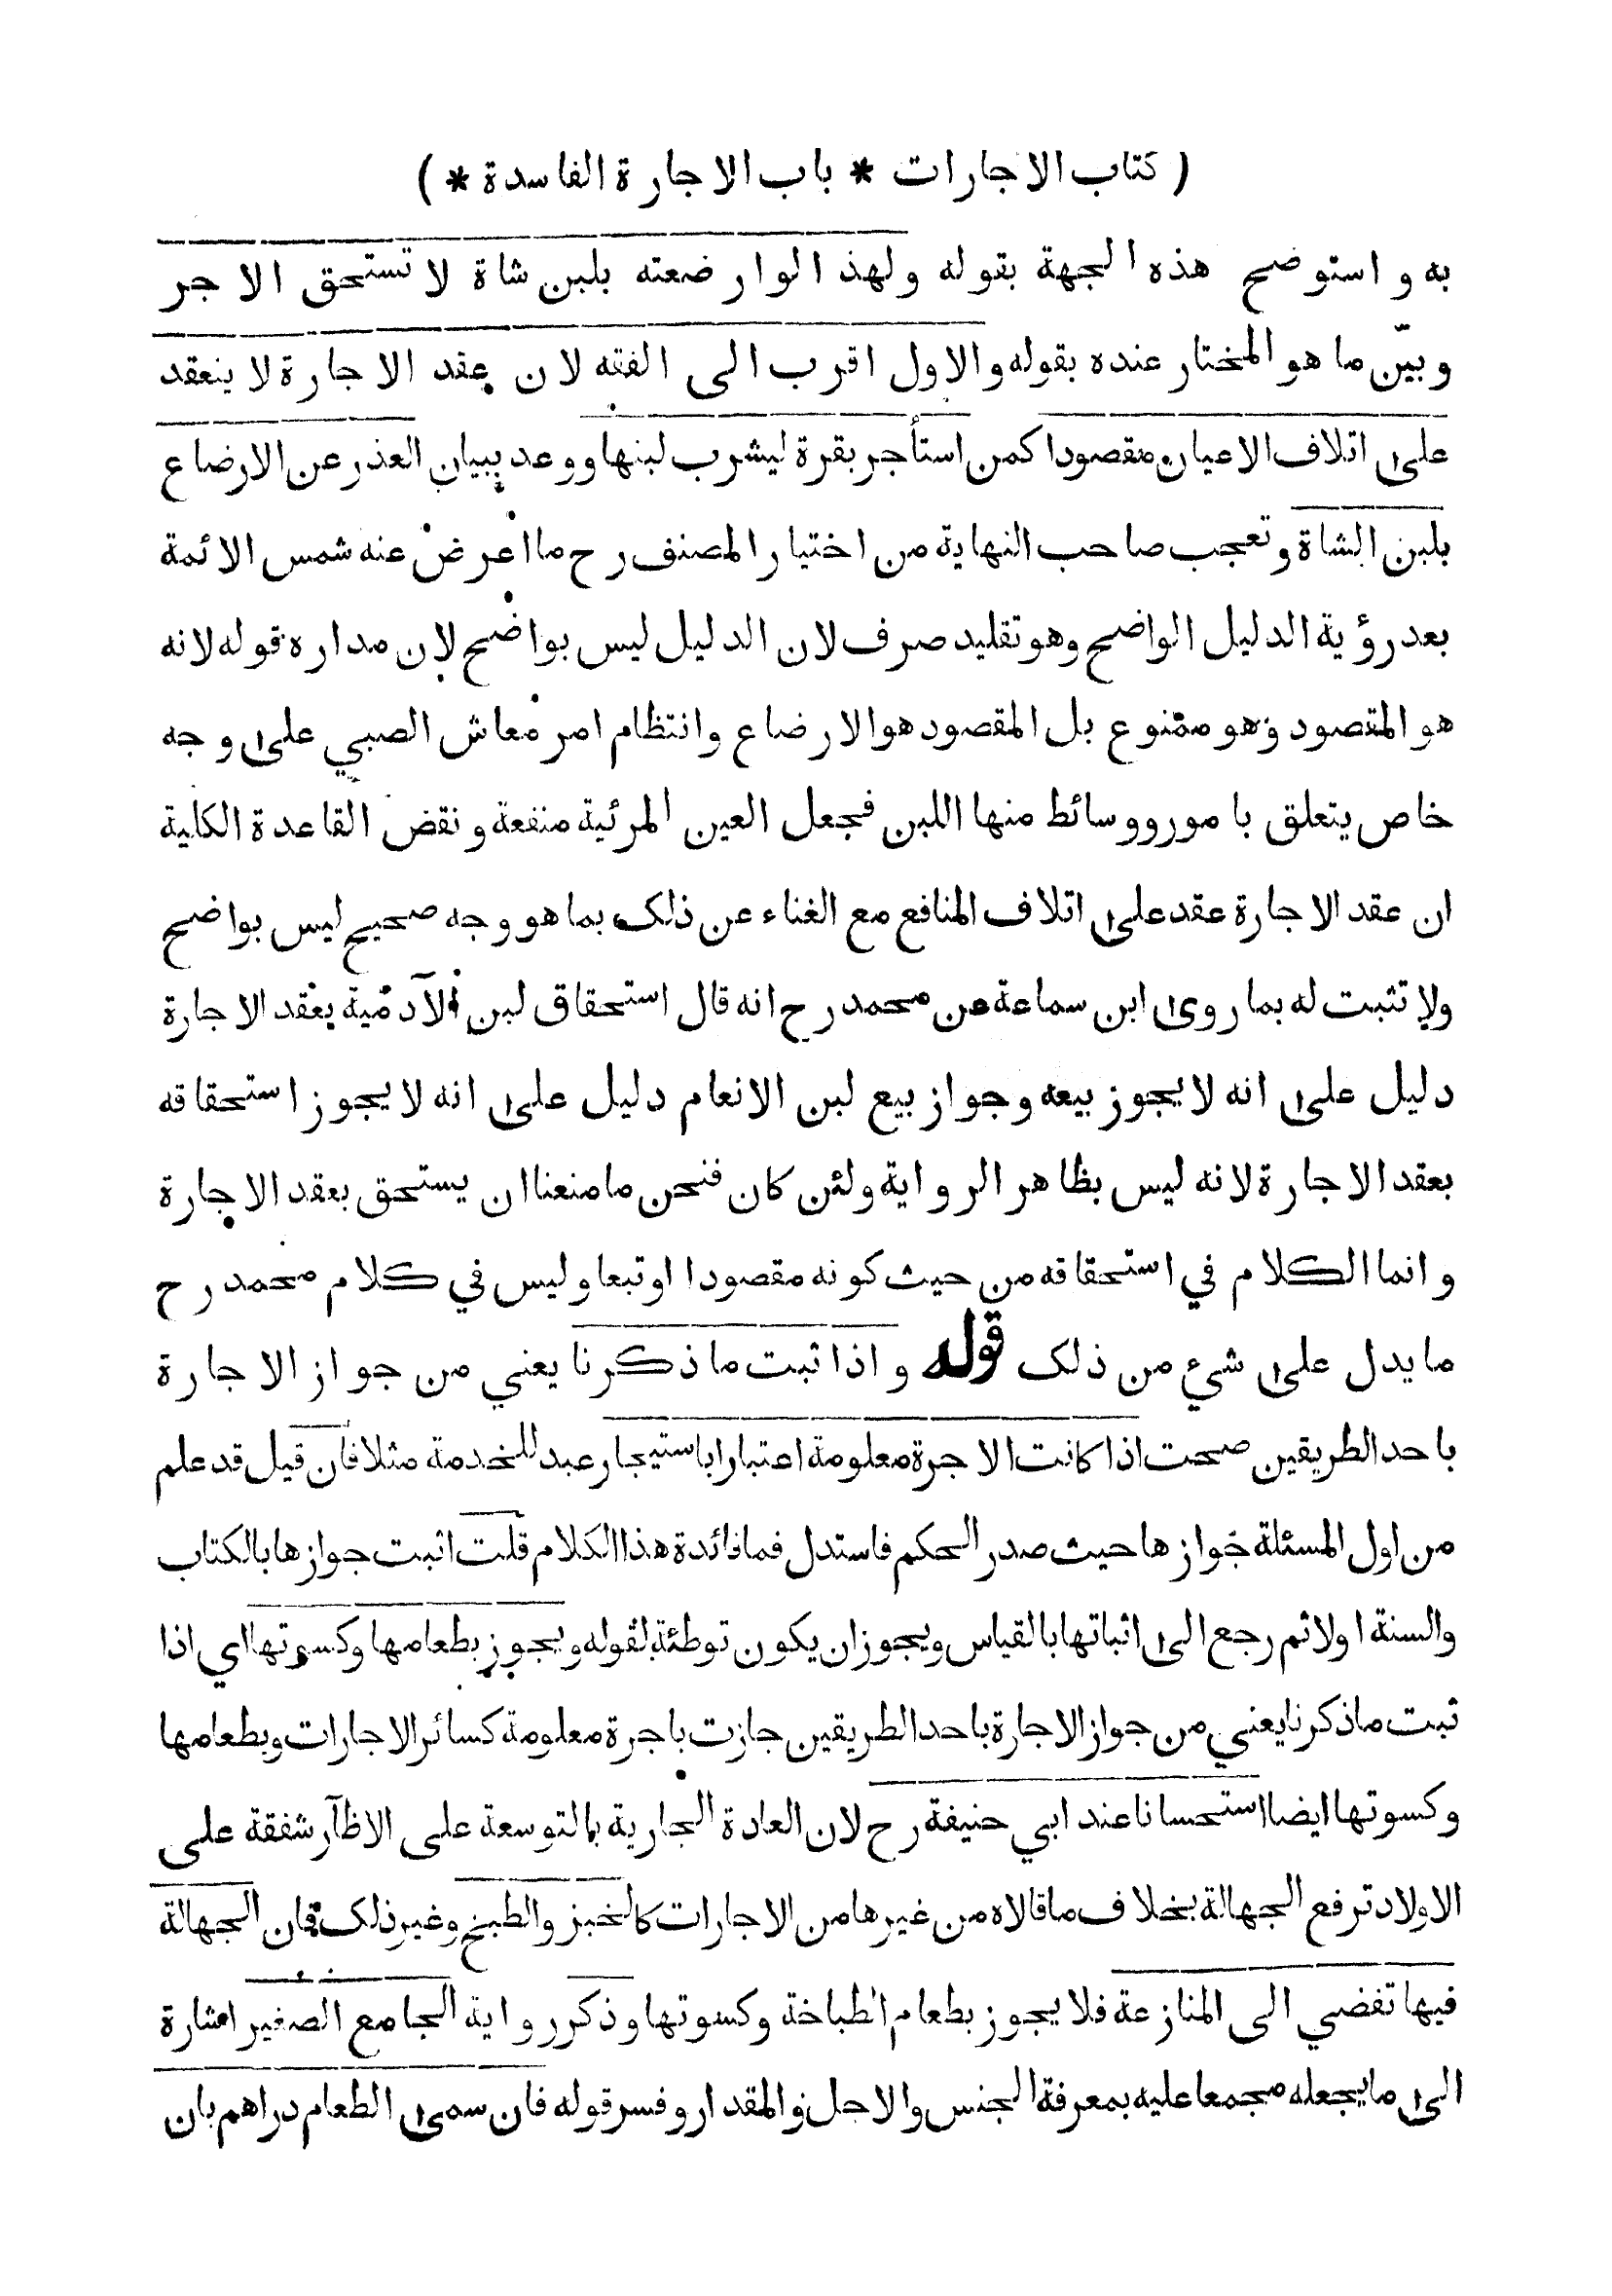 ( كتاب الاجارات * باب الاجارة الفاسدة * )
به و استوضح هذه الجهة بقوله ولهذ الوارضعته بلبن شاة لا تستحق الاجر
وبيّن ما هو المختار عنده بقوله والاول اقرب الى الفقه لان عقد الاجارة لا ينعقد
على اتلاف الاعيان مقصودا كمن استأجر بقرة ليشرب لبنها ووعد ببيان العذر عن الارضاع
بلبن الشاة وتعجب صاحب النهاية من اختيار المصنف رح ما اعرض عنه شمس الائمة
بعد رؤية الدليل الواضح وهو تقليد صرف لان الدليل ليس بواضح لان مداره قوله لانه
هو المقصود وهو ممنوع بل المقصود هو الارضاع وانتظام امر معاش الصبي على وجه
خاص يتعلق بامور ووسائط منها اللبن فجعل العين المرئية منفعة ونقض القاعدة الكلية
ان عقد الاجارة عقد على اتلاف المنافع مع الغناء عن ذلك بما هو وجه صحيح ليس بواضح
ولا تثبت له بما روى ابن سماعة عن محمد رح انه قال استحقاق لبن الآدمية بعقد الاجارة
دليل على انه لا يجوز بيعه وجواز بيع لبن الانعام دليل على انه لا يجوز استحقاقه
بعقد الاجارة لانه ليس بظاهر الرواية ولئن كان فنحن ما منعنا ان يستحق بعقد الاجارة
وانما الكلام في استحقاقه من حيث كونه مقصودا او تبعا وليس في كلام محمد رح
ما يدل على شيء من ذلك قوله واذا ثبت ما ذكرنا يعني من جواز الاجارة
باحد الطريقين صحت اذا كانت الاجرة معلومة اعتبارا باستيجار عبد للخدمة مثلا فان قيل قد علم
من اول المسئلة جوازها حيث صدر الحكم فاستدل فما فائدة هذا الكلام قلت اثبت جوازها بالكتاب
والسنة اولا ثم رجع الى اثباتها بالقياس ويجوز ان يكون توطئة لقوله ويجوز بطعامها وكسوتها اي اذا
ثبت ما ذكرنا يعني من جواز الاجارة باحد الطريقين جازت باجرة معلومة كسائر الاجارات وبطعامها
وكسوتها ايضا استحسانا عند ابي حنيفة رح لان العادة الجارية بالتوسعة على الاظآر شفقة على
الاولاد ترفع الجهالة بخلاف ما قالاه من غيرها من الاجارات كالخبز والطبخ وغير ذلك فان الجهالة
فيها تفضي الى المنازعة فلا يجوز بطعام الطباخة وكسوتها وذكر رواية الجامع الصغير اشارة
الى ما يجعله مجمعا عليه بمعرفة الجنس والاجل والمقدار وفسر قوله فان سمى الطعام دراهم بان